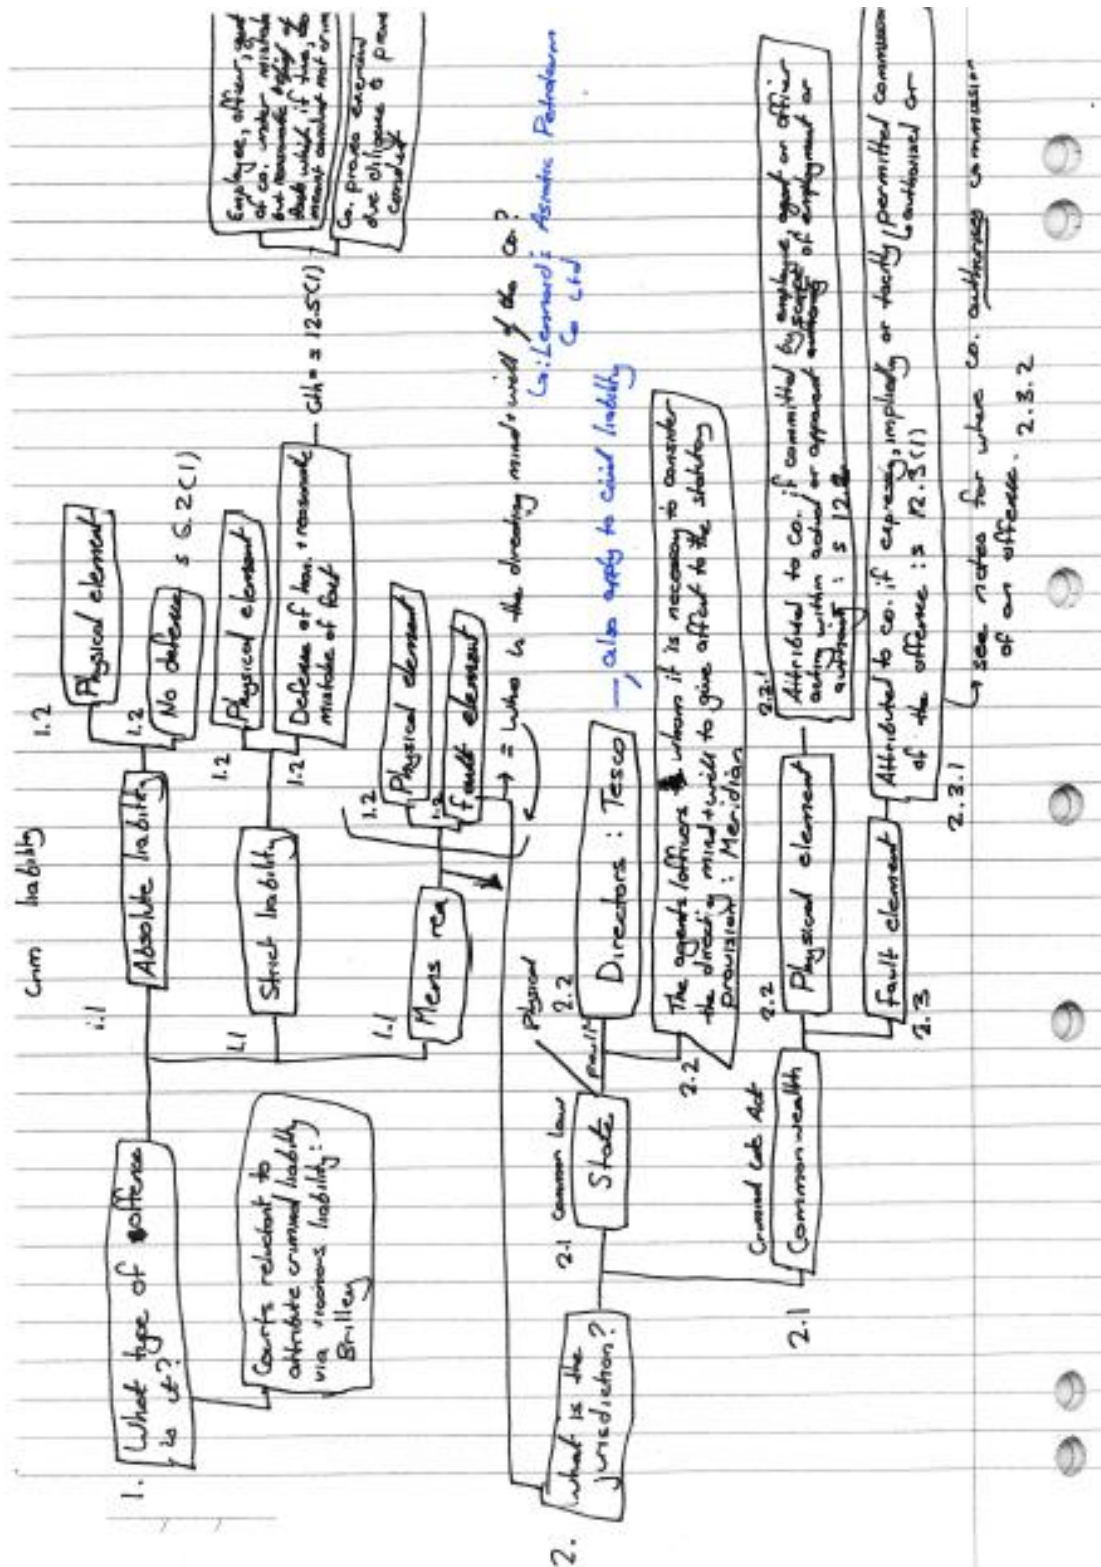 Crim liability
1. What type of offence
is it?
Courts reluctant to
attribute criminal liability
via vicarious liability:
Brilley
1.1
Absolute liability
1.2
Physical element
1.2
No defence
s 6.2(1)
1.1
Strict liability
1.2
Physical element
1.2
Defence of hon. + reasonable
mistake of fact
Cth = s 12.5(1)
Employee, officer, agent
of co. under mistake
but reasonable belief of
facts which, if true,
meant conduct not crim
Co. proves exercised
due diligence to prevent
conduct
1.1
Mens rea
1.2
Physical element
1.2
Fault element
→ = Who is the directing mind + will of the co.?
Lennard: Asiatic Petroleum
Co Ltd
2. What is the
jurisdiction?
2.1 Common law
State
Physical
Fault
2.2
Directors : Tesco
— also apply to civil liability
2.2
The agents/officers whom it is necessary to consider
the directing mind + will to give effect to the statutory
provision : Meridian
2.1
Criminal Code Act
Commonwealth
2.2
Physical element
2.2.1
Attributed to co. if committed by employee, agent or officer
acting within actual or apparent scope of employment or
authority : s 12.2
2.3
Fault element
2.3.1
Attributed to co. if expressly, impliedly or tacitly permitted commission
authorised or
of the offence : s 12.3(1)
↳ see notes for where co. authorises commission
of an offence. 2.3.2